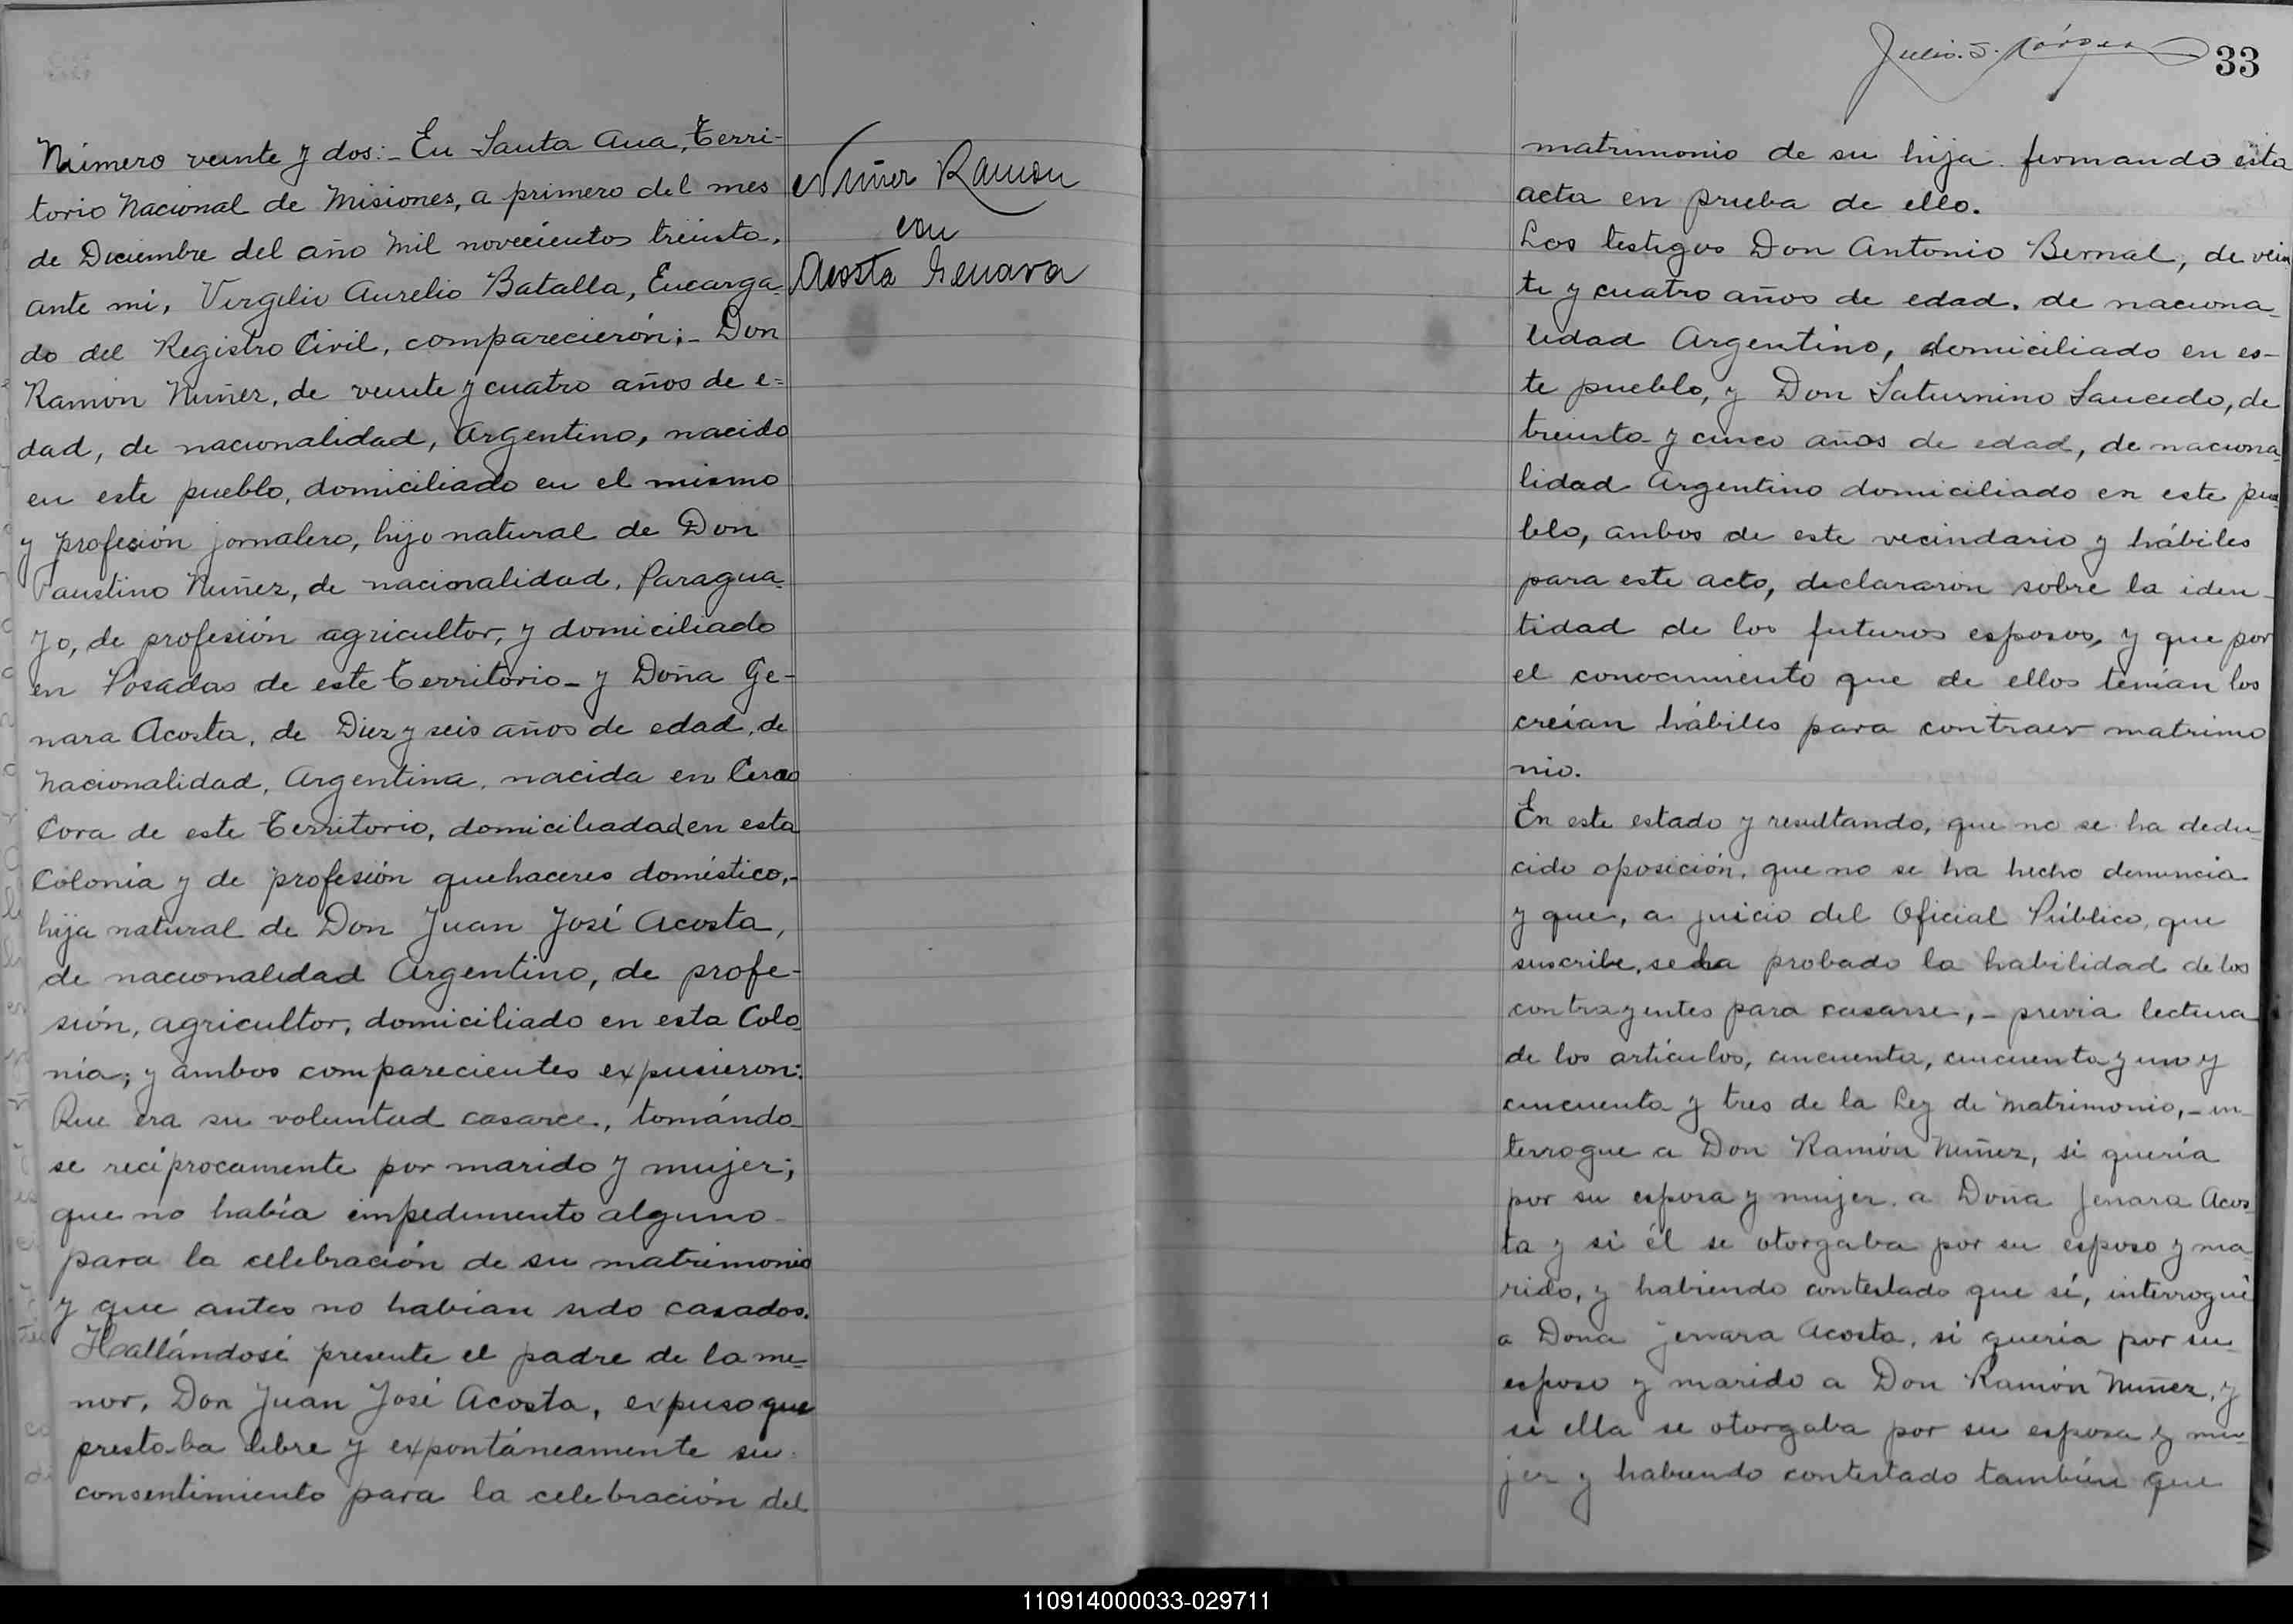 Número veinte y dos:- En Santa Ana, Terri-
torio Nacional de Misiones, a primero del mes
de Diciembre del año mil novecientos treinta,
ante mi, Virgilio Aurelio Batalla, Encarga-
do del Registro Civil, comparecierón:- Don
Ramón Nuñez, de veinte y cuatro años de e=
dad, de nacionalidad, Argentino, nacido
en este pueblo, domiciliado en el mismo
y profesión jornalero, hijo natural de Don
Faustino Nuñez, de nacionalidad, Paragua-
yo, de profesión agricultor, y domiciliado
en Posadas de este Territorio - y Doña Ge-
nara Acosta, de Diez y seis años de edad, de
Nacionalidad, Argentina, nacida en Cerro
Cora de este Territorio, domiciliada en esta
Colonia y de profesión quehaceres doméstico,-
hija natural de Don Juan José Acosta,
de nacionalidad Argentino, de profe-
sión, agricultor, domiciliado en esta Colo-
nia; y ambos comparecientes expusieron:
Que era su voluntad casarce, tomándo-
se reciprocamente por marido y mujer;
que no había impedimento alguno
para la celebración de su matrimonio
y que antes no habían sido casados.
Hallándosé presente el padre de la me-
nor, Don Juan José Acosta, expuso que
prestaba libre y expontáneamente su
consentimiento para la celebración del
Nuñez Ramon
con
Acosta Genara
33
matrimonio de su hija firmando esta
acta en prueba de ello.
Los testigos Don Antonio Bernal, de vein
te y cuatro años de edad, de naciona-
lidad Argentino, domiciliado en es-
te pueblo, y Don Saturnino Saucedo, de
treinta y cinco años de edad, de naciona-
lidad Argentino domiciliado en este pue
blo, anbos de este vecindario y hábiles
para este acto, declararon sobre la iden-
tidad de los futuros esposos, y que por
el conocimiento que de ellos tenían los
creían hábiles para contraer matrimo
nio.
En este estado y resultando, que no se ha dedu-
cido oposición, que no se ha hecho denuncia
y que, a juicio del Oficial Público, que
suscribe, se ha probado la habilidad de los
contrayentes para casarse, - previa lectura
de los artículos, cincuenta, cincuenta y uno y
cincuenta y tres de la Ley de Matrimonio, - in-
terrogue a Don Ramón Nuñez, si quería
por su esposa y mujer a Doña Jenara Acos-
ta y si él se otorgaba por su esposo y ma-
rido, y habiendo contestado que sí, interrogué
a Dona Jenara Acosta, si quería por su
esposo y marido a Don Ramón Nuñez, y
si ella se otorgaba por su esposa y mu-
jer y habiendo contestado también que
110914000033-029711